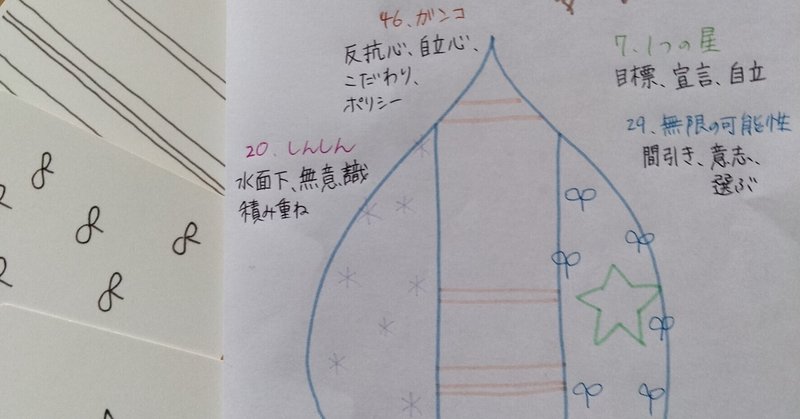 46、ガンコ
反抗心、自立心、
こだわり、
ポリシー
7、1つの星
目標、宣言、自立
29、無限の可能性
間引き、意志、
選ぶ
20、しんしん
水面下、無意識
積み重ね